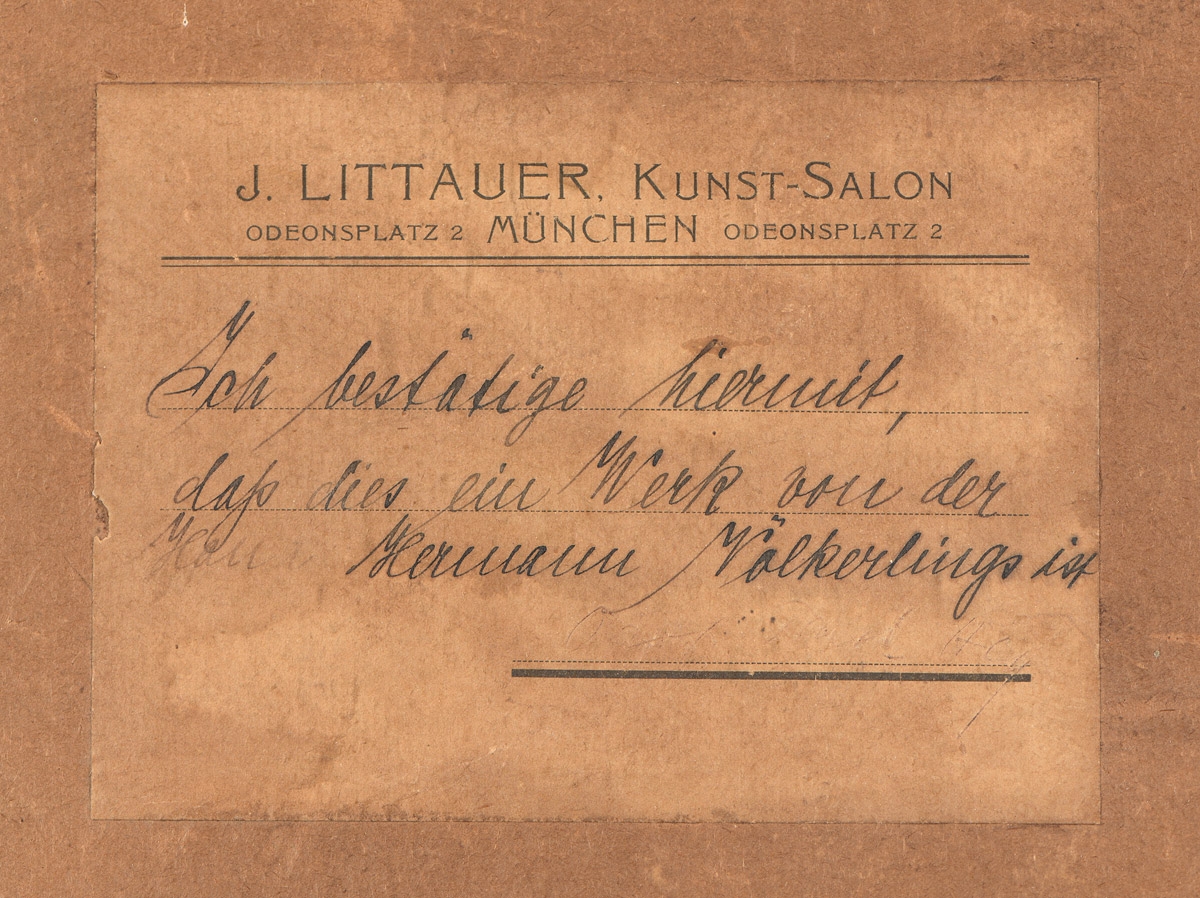 J. LITTAUER, KUNST-SALON
ODEONSPLATZ 2 MÜNCHEN ODEONSPLATZ 2
Ich bestätige hiermit,
daß dies ein Werk von der
Hermann Völkerlings ist